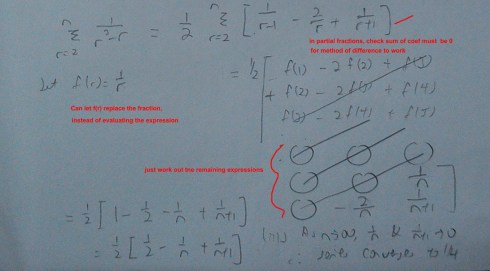 n n
Σ 1/(r³-r) = 1/2 Σ [ 1/(r-1) - 2/r + 1/(r+1) ]
r=2 r=2
in partial fractions, check sum of coef must be 0
for method of difference to work
let f(r) = 1/r
= 1/2 [ f(1) - 2f(2) + f(3)
+ f(2) - 2f(3) + f(4)
f(3) - 2f(4) + f(5)
Can let f(r) replace the fraction,
instead of evaluating the expression
just work out the remaining expressions
1/n
- 2/n 1/(n+1) ]
= 1/2 [ 1 - 1/2 - 1/n + 1/(n+1) ]
= 1/2 [ 1/2 - 1/n + 1/(n+1) ]
(iii) As n→∞, 1/n & 1/(n+1) → 0
∴ series converges to 1/4